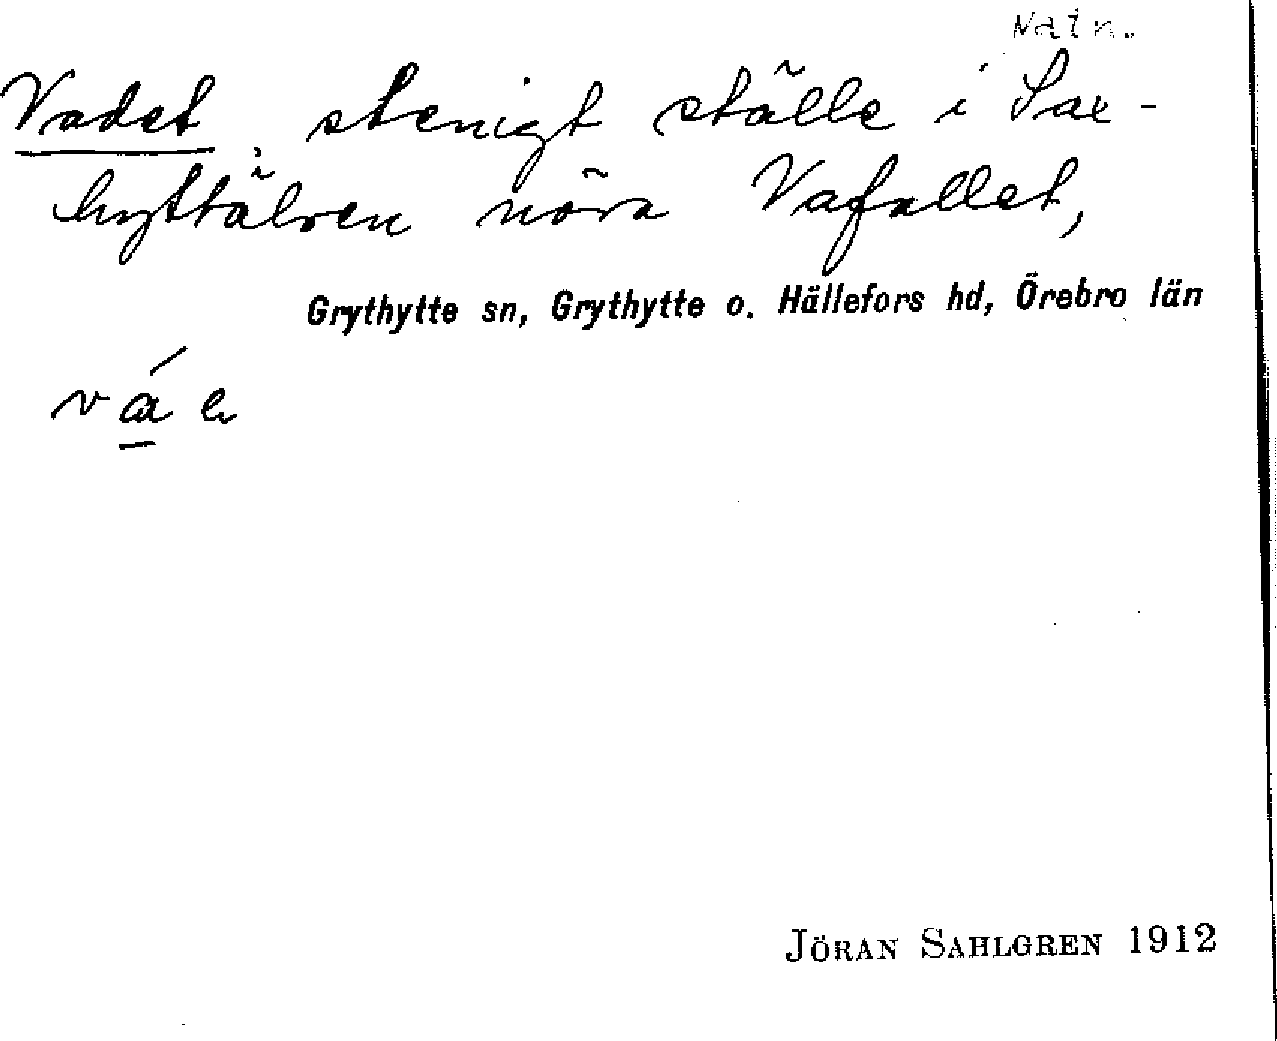 Natn.
Vadet, stenigt ställe i Sax-
hyttälven nära Vafallet,
Grythytte sn, Grythytte o. Hällefors hd, Örebro län
JÖRAN SAHLGREN 1912